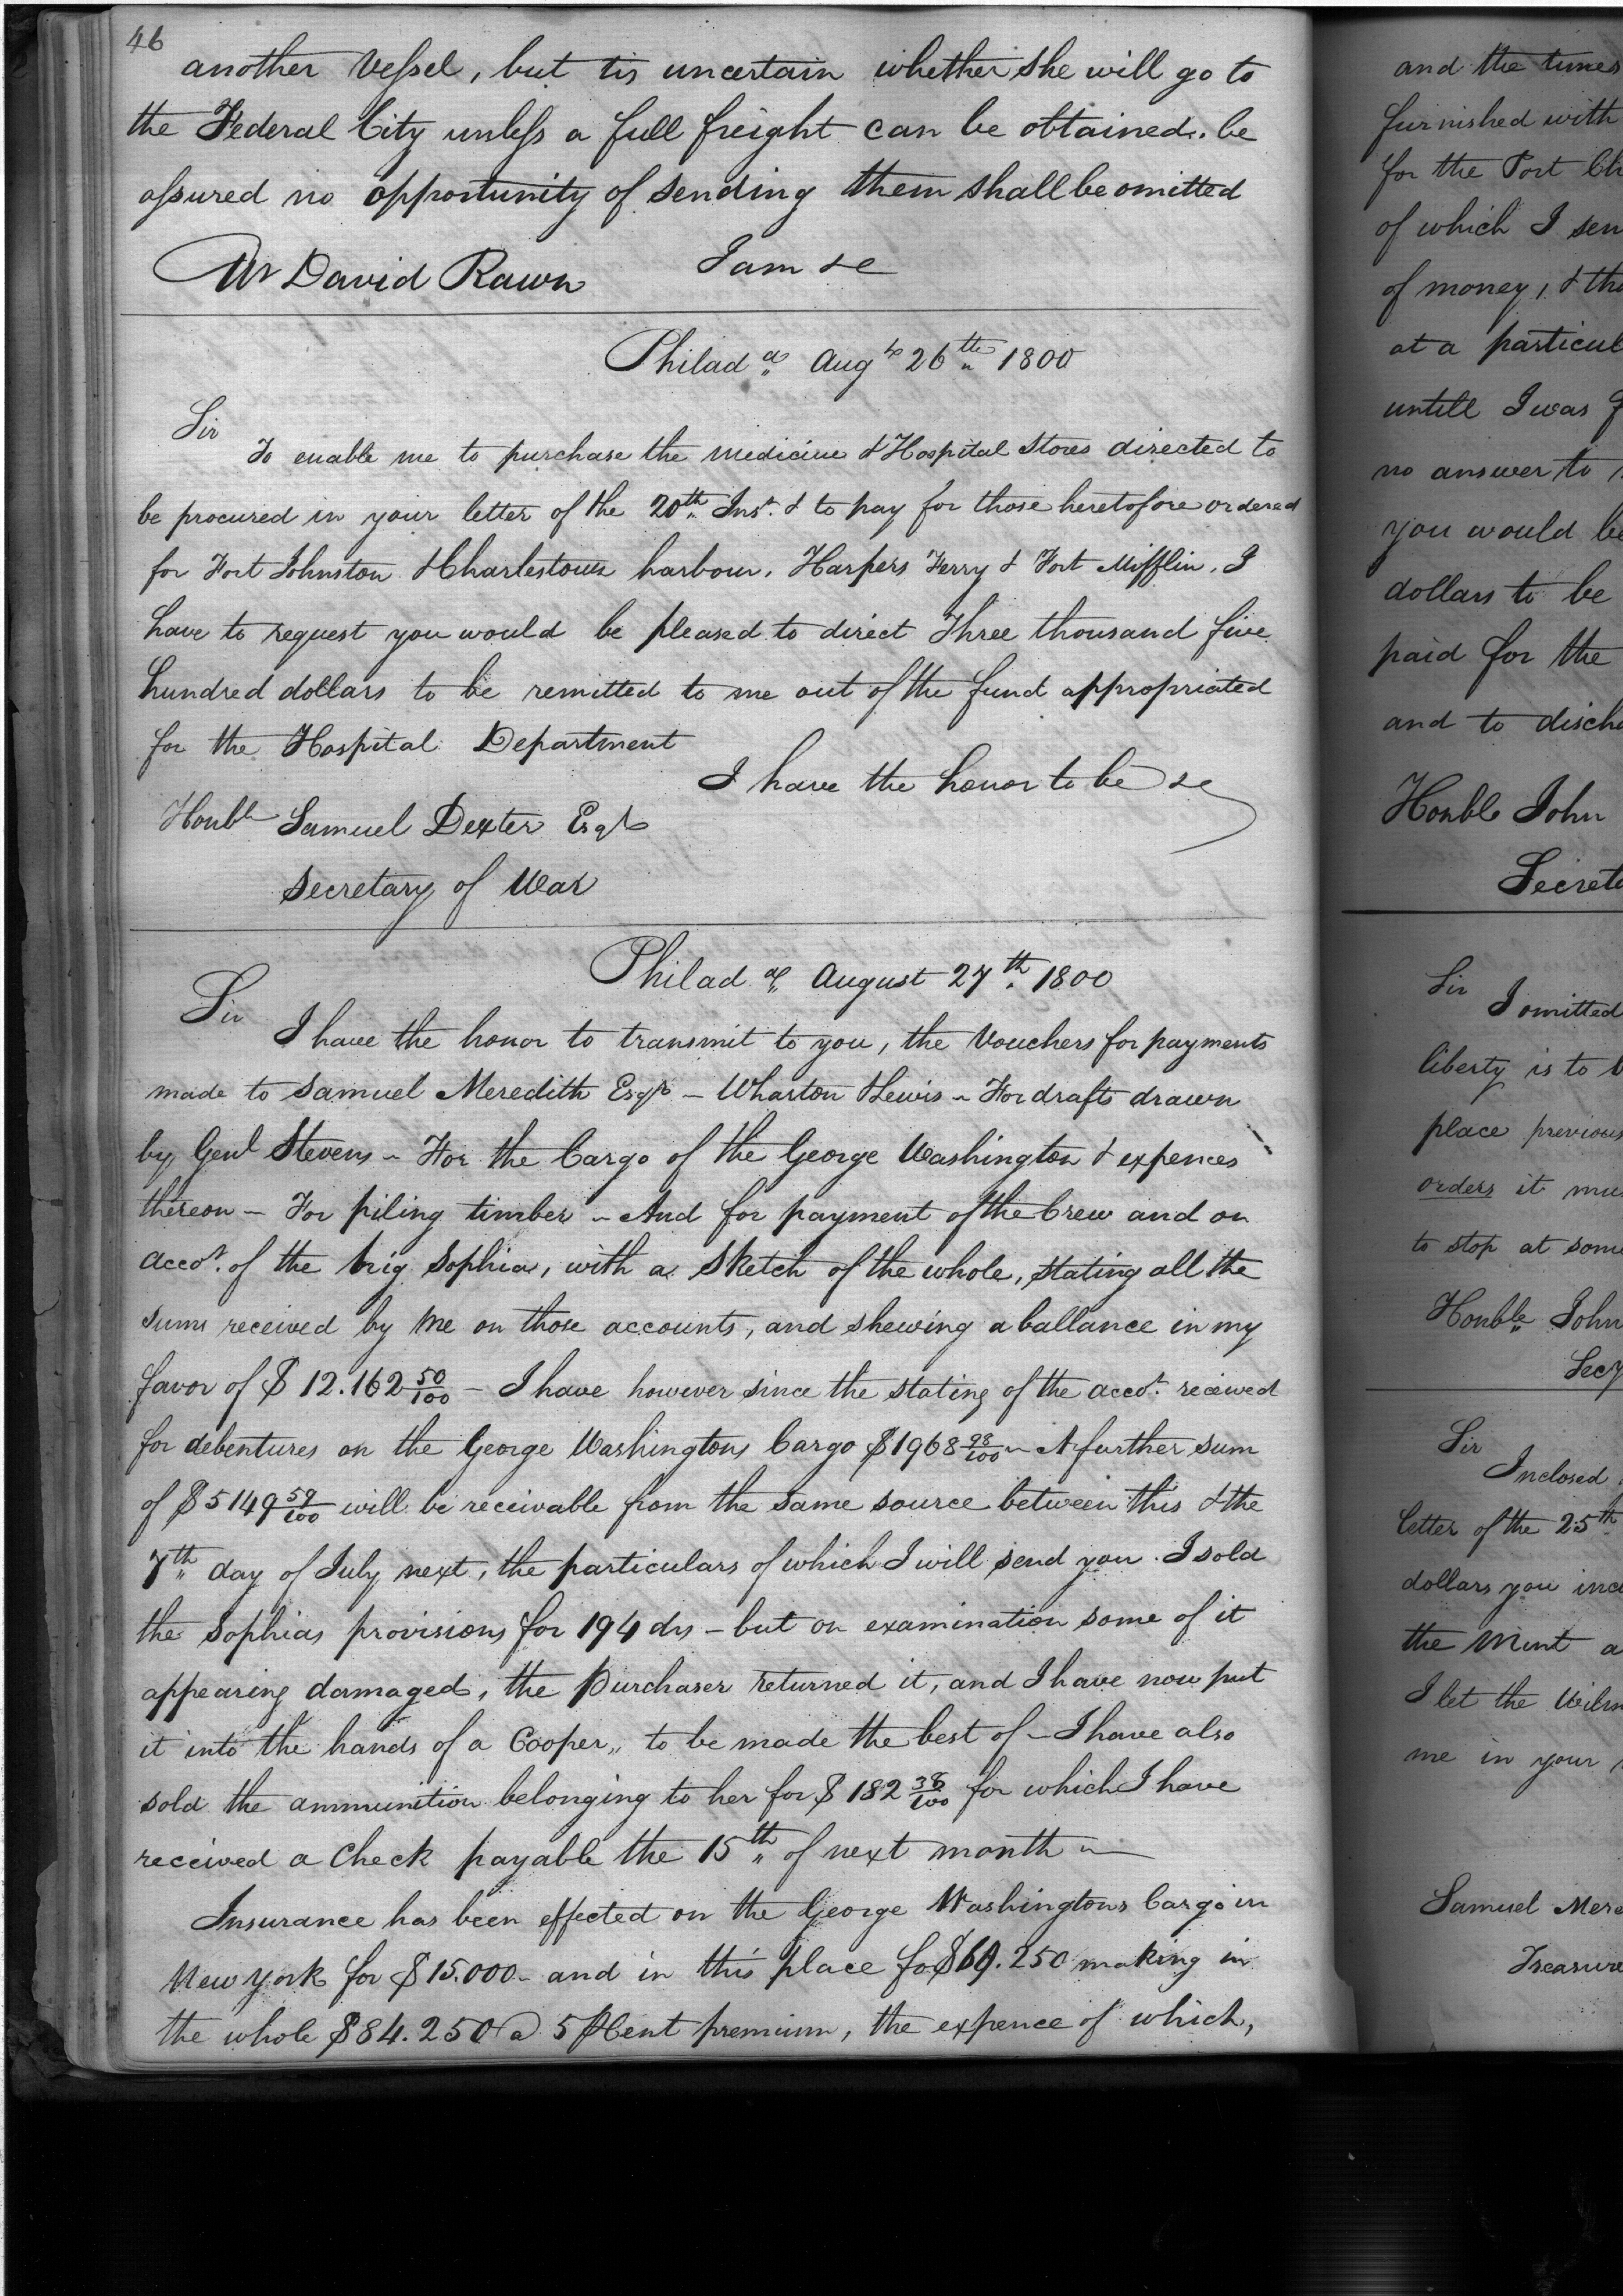 46
another Vessel, but tis uncertain whether she will go to
the Federal City unless a full freight can be obtained. be
assured no opportunity of sending them shall be omitted
I am &c
Mr David Rawn
Philad a Augt 26th 1800
Sir
To enable me to purchase the medicine & Hospital Stores directed to
be procured in your letter of the 20th Inst. & to pay for those heretofore ordered
for Fort Johnston & Charlestown harbour, Harpers Ferry & Fort Mifflin, I
have to request you would be pleased to direct Three thousand five
hundred dollars to be remitted to me out of the fund appropriated
for the Hospital Department
I have the honor to be &c
Honble Samuel Dexter Esqr
Secretary of War
Philad a August 27th 1800
Sir
I have the honor to transmit to you, the Vouchers for payments
made to Samuel Meredith Esqr - Wharton & Lewis - For drafts drawn
by Genl Stevens - For the Cargo of the George Washington & expences
thereon - For piling timber - And for payment of the Crew and on
accot. of the brig Sophia, with a Sketch of the whole, stating all the
sums received by me on those accounts, and shewing a ballance in my
favor of $ 12.162 50/100 - I have however since the stating of the accot. received
for debentures on the George Washingtons Cargo $1968 98/100 - A further sum
of $5149 59/100 will be receivable from the same source between this & the
7th day of July next, the particulars of which I will send you. I sold
the Sophias provisions for 194 drs - but on examination some of it
appearing damaged, the Purchaser returned it, and I have now put
it into the hands of a Cooper, to be made the best of - I have also
sold the ammunition belonging to her for $ 182 38/100 for which I have
received a Check payable the 15th of next month -
Insurance has been effected on the George Washingtons Cargo in
New York for $15.000 - and in this place for $69.250 making in
the whole $84.250 @ 5 P Cent premium, the expence of which,
and the times
furnished with
for the Port
of which I sen
of money, & tha
at a particul
untill I was
no answer to
you would be
dollars to be
paid for the
and to discha
Honble John
Secreta
Sir
I omitted
liberty is to
place previous
orders it mu
to stop at some
Honble John
Secy
Sir
Inclosed
letter of the 25th
dollars you inc
the Mint a
I let the
me in your
Samuel Mere
Treasure